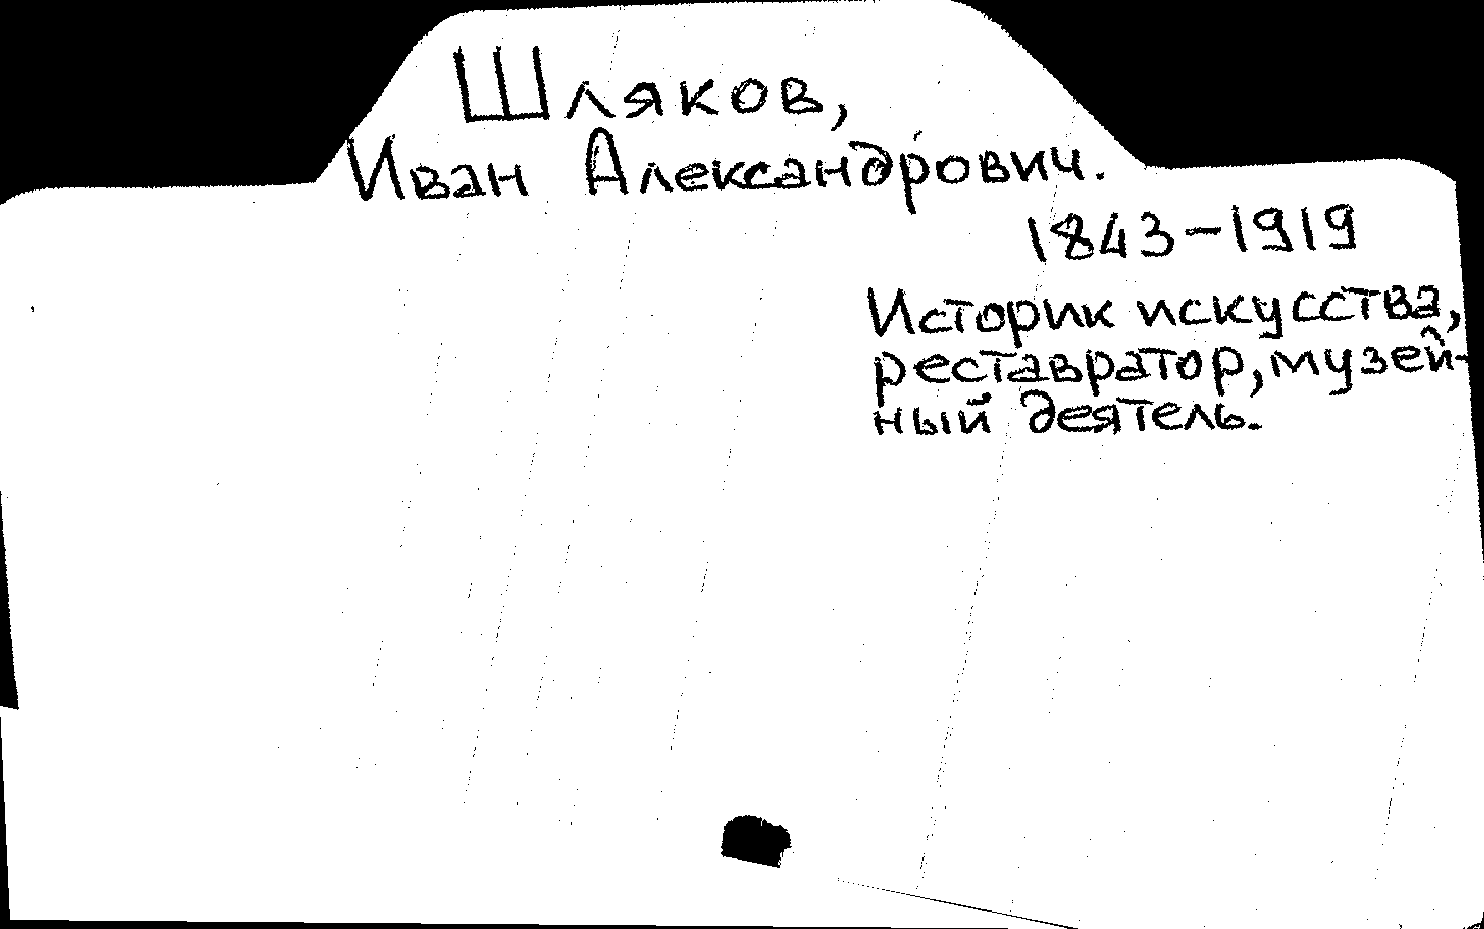 Шляков,
Иван Александрович.
1843-1919
Историк искусства,
реставратор, музей-
ный деятель.